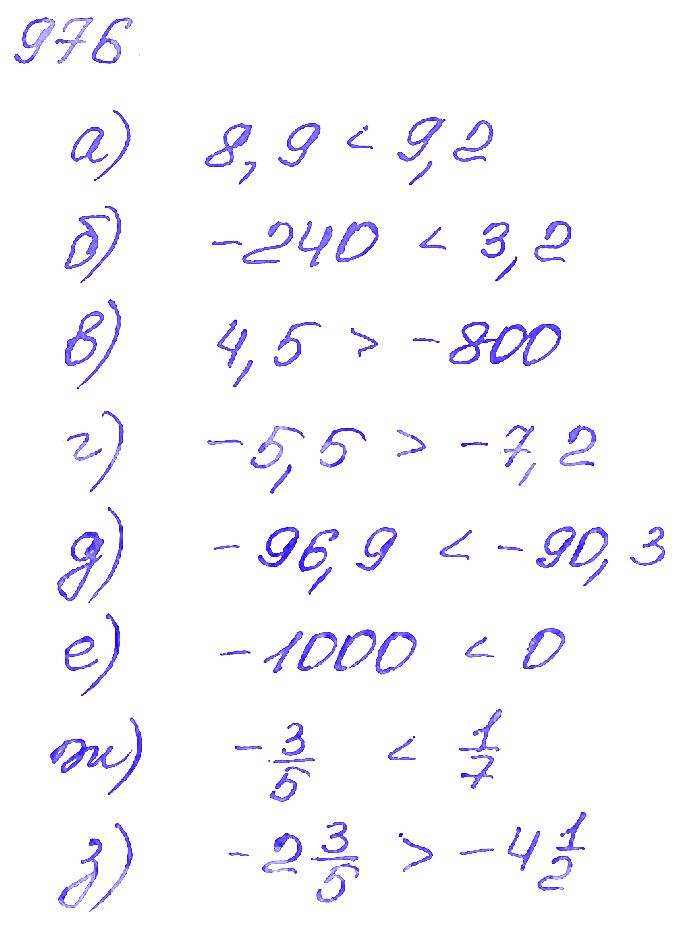 976
а) 8,9 < 9,2
б) -240 < 3,2
в) 4,5 > -800
г) -5,5 > -7,2
д) -96,9 < -90,3
е) -1000 < 0
ж) -3/5 < 1/7
з) -2 3/5 > -4 1/2